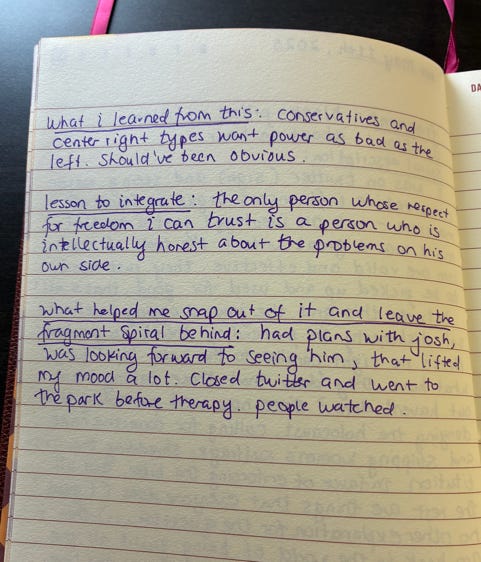 what i learned from this: conservatives and
center right types want power as bad as the
left. should've been obvious.
lesson to integrate: the only person whose respect
for freedom i can trust is a person who is
intellectually honest about the problems on his
own side.
what helped me snap out of it and leave the
fragment spiral behind: had plans with josh,
was looking forward to seeing him, that lifted
my mood a lot. Closed twitter and went to
the park before therapy. people watched.
DA